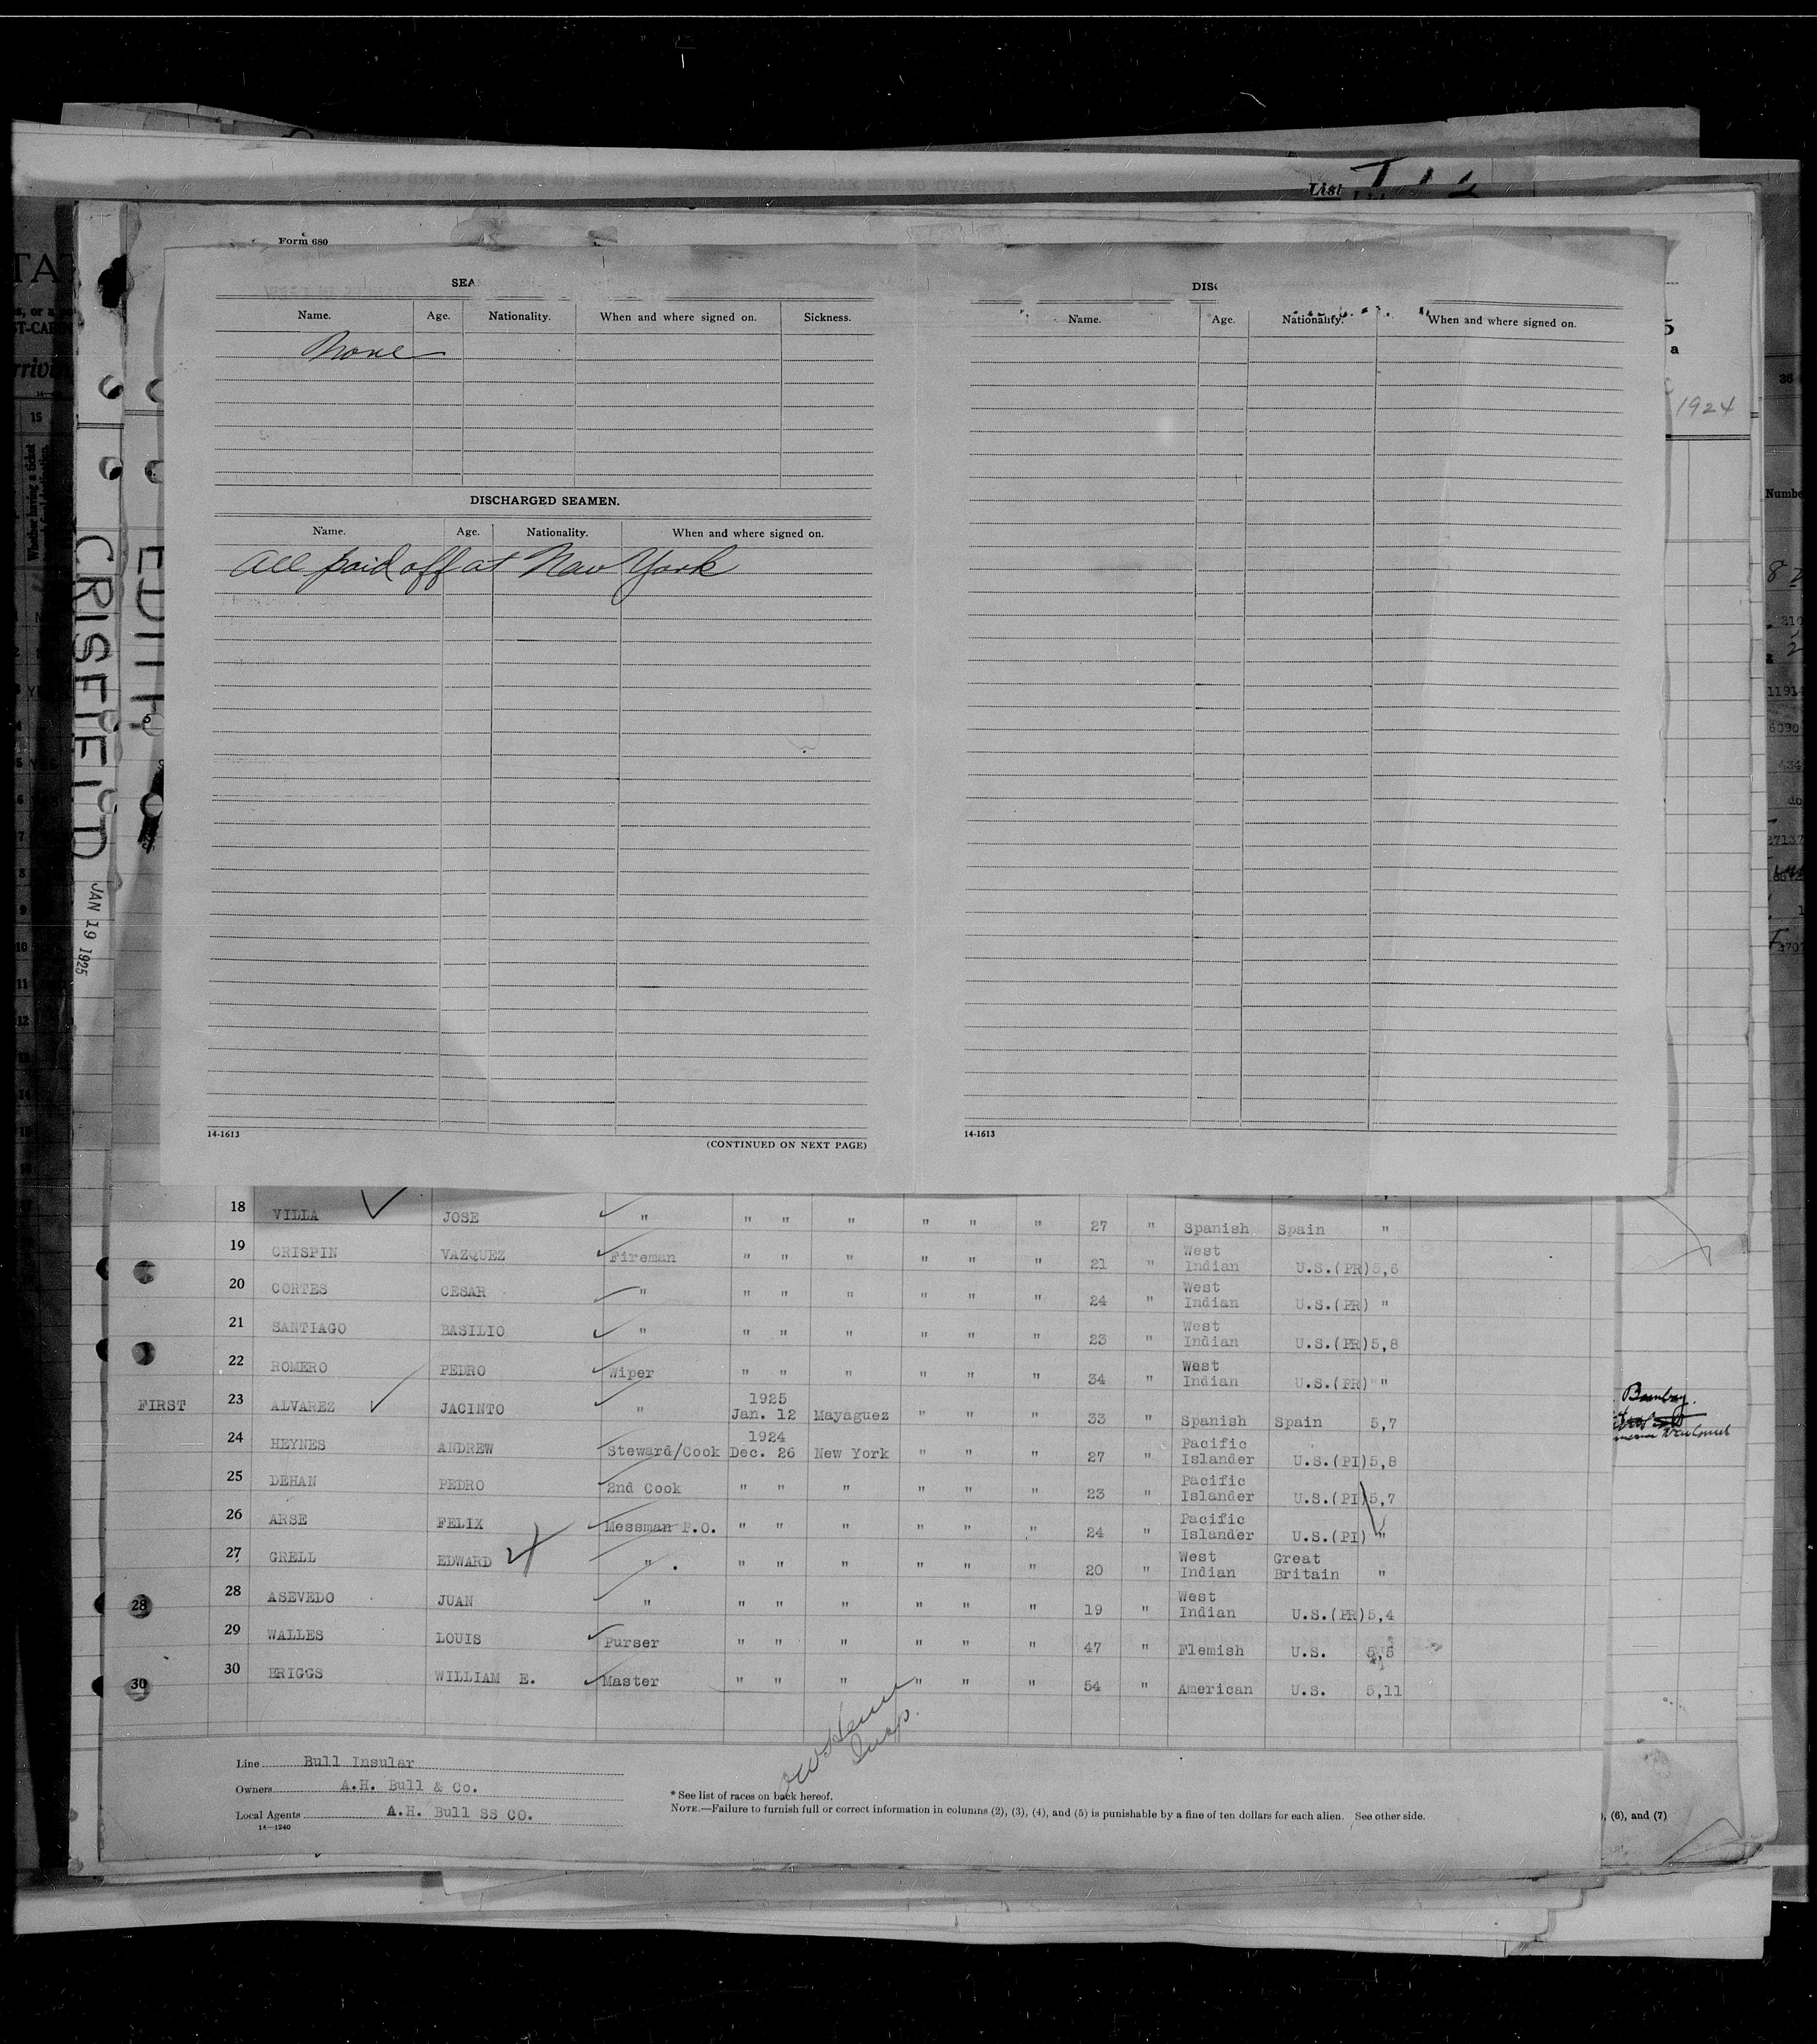 List
Form 680
SEA
Name. Age. Nationality. When and where signed on. Sickness.
None
DISCHARGED SEAMEN.
Name. Age. Nationality. When and where signed on.
All paid off at New York
14-1613
(CONTINUED ON NEXT PAGE)
DISC
Name. Age. Nationality. When and where signed on.
14-1613
1924
EDITH
CRISFIELD
JAN 19 1925
18 VILLA JOSE " " " " " " " 27 " Spanish Spain "
19 CRISPIN VAZQUEZ Fireman " " " " " " 21 " West Indian U.S.(PR) 5,6
20 CORTES CESAR " " " " " " " 24 " West Indian U.S.(PR) "
21 SANTIAGO BASILIO " " " " " " " 23 " West Indian U.S.(PR) 5,8
22 ROMERO PEDRO Wiper " " " " " " 34 " West Indian U.S.(PR) "
FIRST 23 ALVAREZ JACINTO " 1925 Jan. 12 Mayaguez " " " 33 " Spanish Spain 5,7
24 HEYNES ANDREW Steward/Cook 1924 Dec. 26 New York " " " 27 " Pacific Islander U.S.(PI) 5,8
25 DEHAN PEDRO 2nd Cook " " " " " " 23 " Pacific Islander U.S.(PI) 5,7
26 ARSE FELIX Messman P.O. " " " " " " 24 " Pacific Islander U.S.(PI) "
27 GRELL EDWARD " " " " " " " 20 " West Indian Great Britain "
28 28 ASEVEDO JUAN " " " " " " " 19 " West Indian U.S.(PR) 5,4
29 WALLES LOUIS Purser " " " " " " 47 " Flemish U.S. 5,5
30 30 BRIGGS WILLIAM E. Master " " " " " " 54 " American U.S. 5,11
Insp.
Line Bull Insular
Owners A.H. Bull & Co.
Local Agents A.H. Bull SS CO.
14-1240
* See list of races on back hereof.
NOTE.—Failure to furnish full or correct information in columns (2), (3), (4), and (5) is punishable by a fine of ten dollars for each alien. See other side.
, (6), and (7)